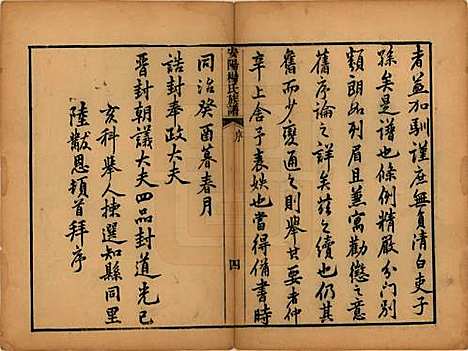 者益加馴謹庶無負清白吏子
孫矣是譜也條例精嚴分門別
類朗如列眉且兼寓勸懲之意
舊序論之詳矣茲之續也仍其
舊而少變通之則舉其要者仲
辛上舍子袁姎也當得備書時
安陽楊氏族譜
序
四
同治癸酉暮春月
誥封奉政大夫
晉封朝議大夫四品封道光己
亥科舉人揀選知縣同里
陸黻恩頓首拜序